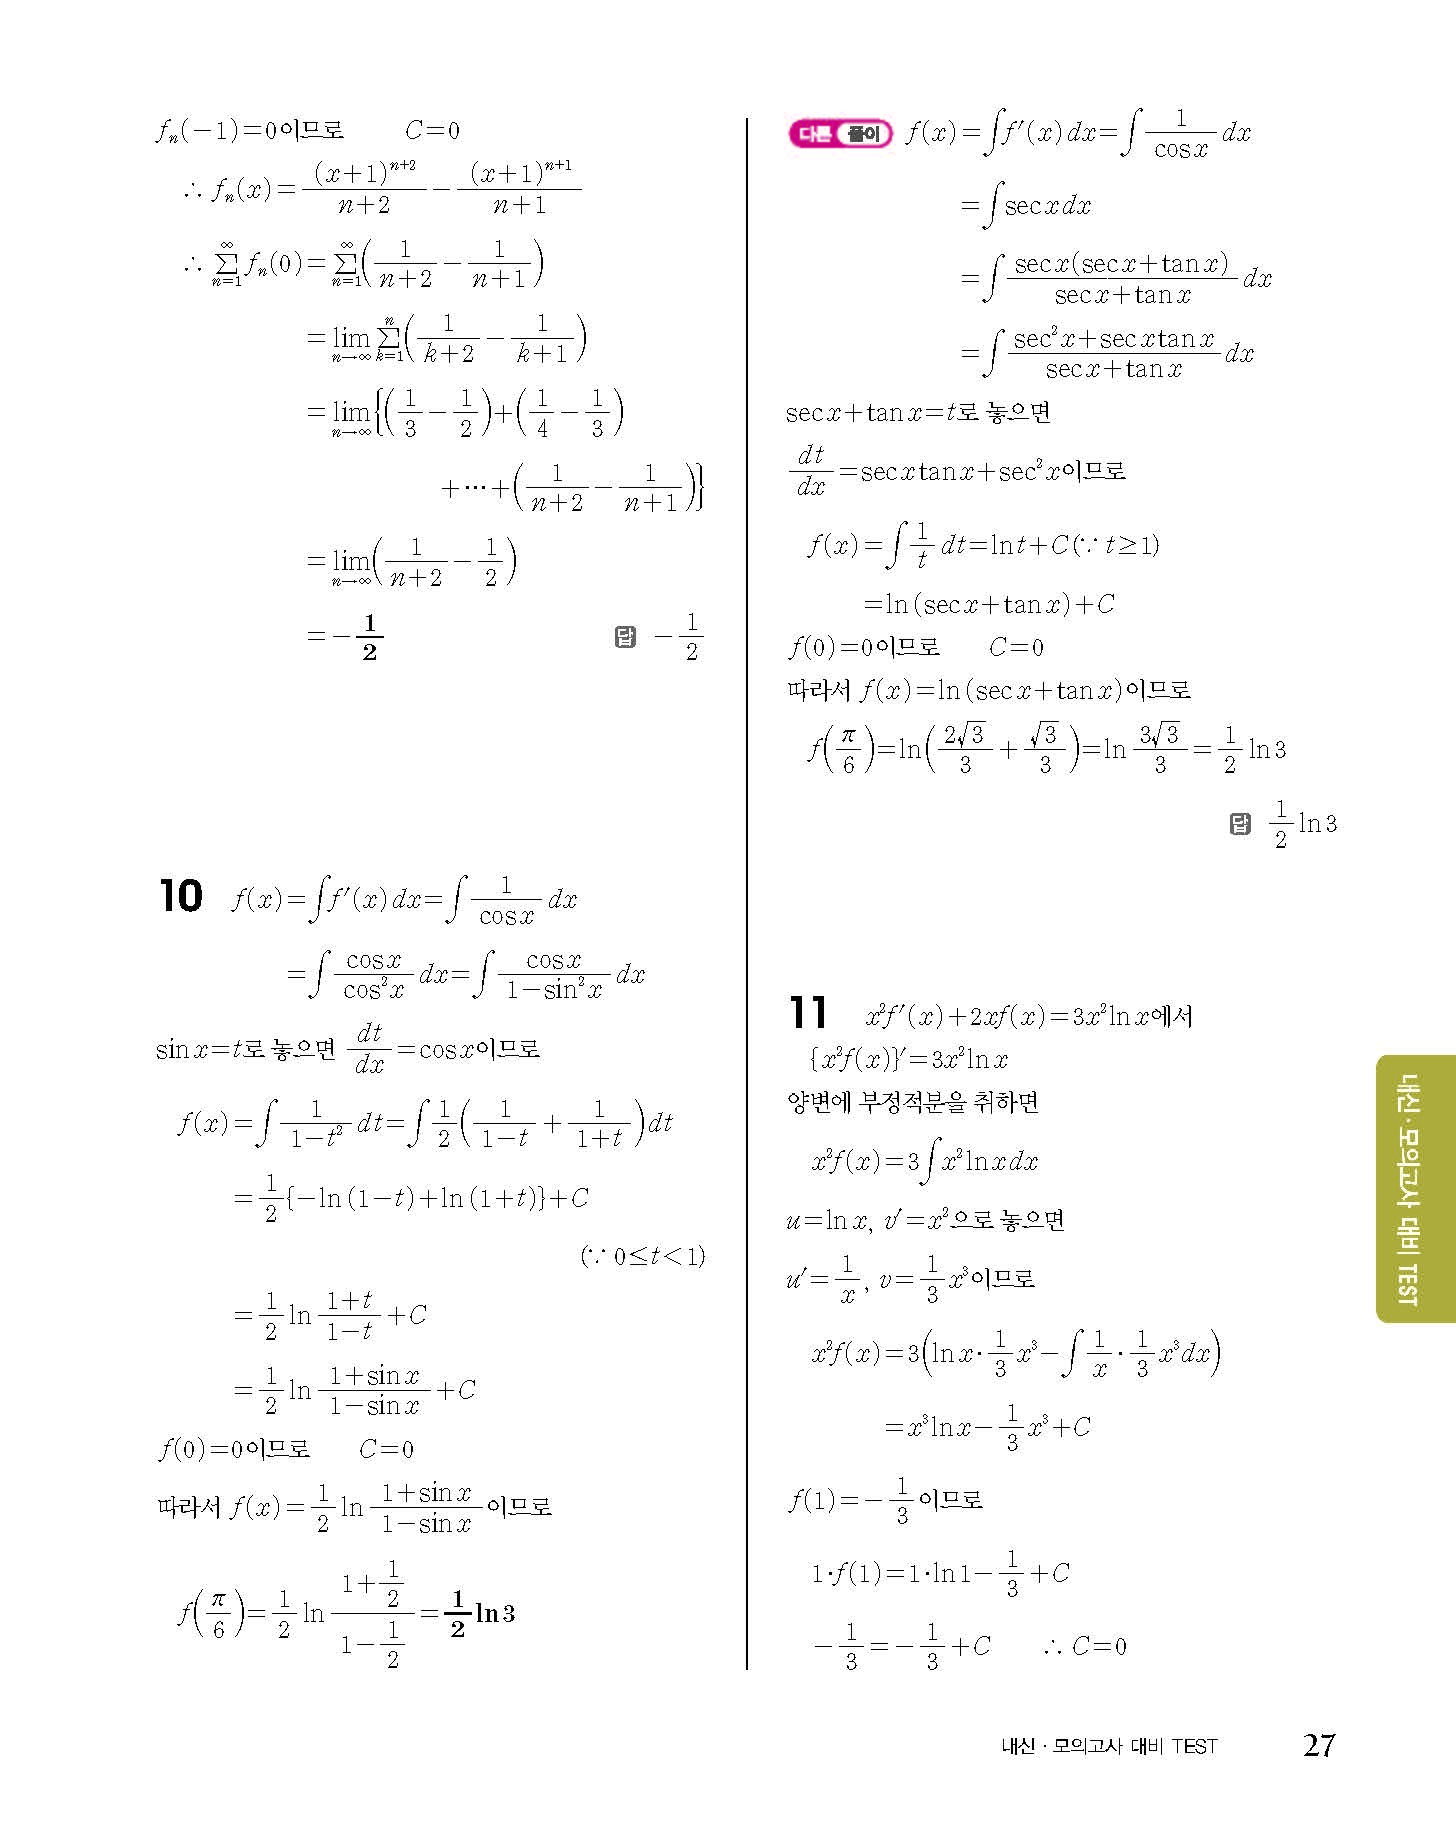 fₙ(−1)=0이므로  C=0
∴ fₙ(x)=(x+1)ⁿ⁺²/(n+2)−(x+1)ⁿ⁺¹/(n+1)
∴ ∑_{n=1}^{∞} fₙ(0)=∑_{n=1}^{∞}(1/(n+2)−1/(n+1))
=lim_{n→∞} ∑_{k=1}^{n}(1/(k+2)−1/(k+1))
=lim_{n→∞}{(1/3−1/2)+(1/4−1/3)
+⋯+(1/(n+2)−1/(n+1))}
=lim_{n→∞}(1/(n+2)−1/2)
=−1/2  답 −1/2
10 f(x)=∫f′(x)dx=∫1/cos x dx
=∫cos x/cos²x dx=∫cos x/(1−sin²x) dx
sin x=t로 놓으면 dt/dx=cos x이므로
f(x)=∫1/(1−t²) dt=∫1/2(1/(1−t)+1/(1+t))dt
=1/2{−ln(1−t)+ln(1+t)}+C
(∵ 0≤t<1)
=1/2 ln (1+t)/(1−t)+C
=1/2 ln (1+sin x)/(1−sin x)+C
f(0)=0이므로  C=0
따라서 f(x)=1/2 ln (1+sin x)/(1−sin x)이므로
f(π/6)=1/2 ln (1+1/2)/(1−1/2)=1/2 ln3
다른 풀이 f(x)=∫f′(x)dx=∫1/cos x dx
=∫sec x dx
=∫sec x(sec x+tan x)/(sec x+tan x) dx
=∫(sec²x+sec x tan x)/(sec x+tan x) dx
sec x+tan x=t로 놓으면
dt/dx=sec x tan x+sec²x이므로
f(x)=∫1/t dt=ln t+C(∵ t≥1)
=ln(sec x+tan x)+C
f(0)=0이므로  C=0
따라서 f(x)=ln(sec x+tan x)이므로
f(π/6)=ln(2√3/3+√3/3)=ln 3√3/3=1/2 ln3
답 1/2 ln3
11 x²f′(x)+2xf(x)=3x²ln x에서
{x²f(x)}′=3x²ln x
양변에 부정적분을 취하면
x²f(x)=3∫x²ln x dx
u=ln x, v′=x²으로 놓으면
u′=1/x, v=1/3 x³이므로
x²f(x)=3(ln x·1/3 x³−∫1/x·1/3 x³dx)
=x³ln x−1/3 x³+C
f(1)=−1/3이므로
1·f(1)=1·ln1−1/3+C
−1/3=−1/3+C  ∴ C=0
내신·모의고사 대비 TEST
내신·모의고사 대비 TEST 27